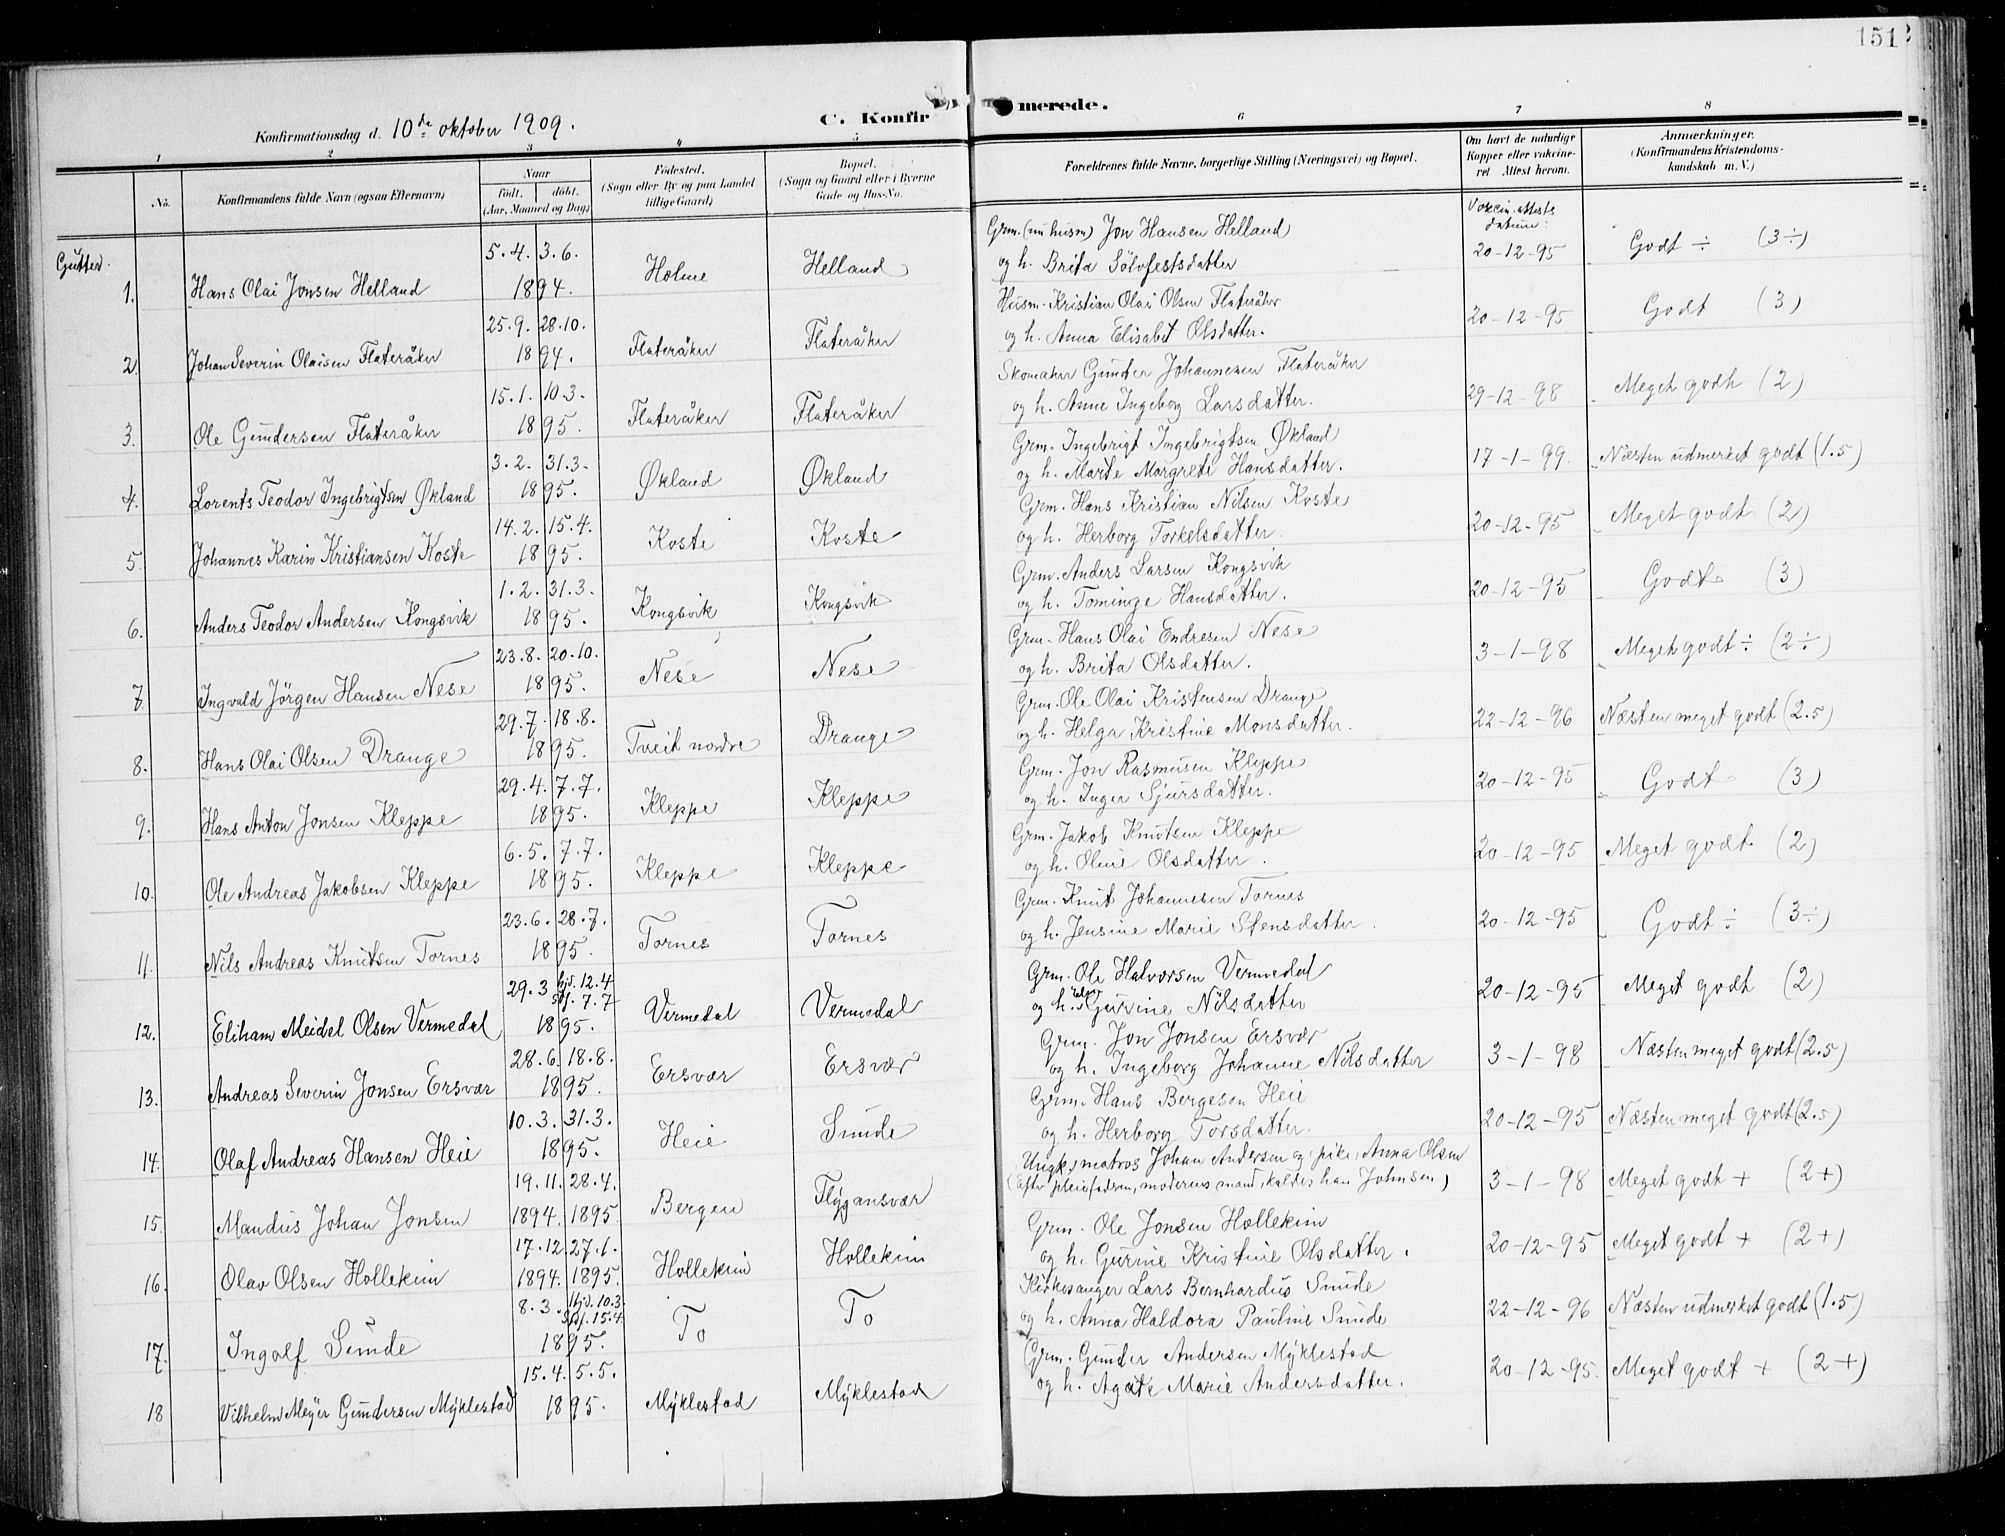 151
Konfirmationsdag d. 10de oktober 1909.
C. Konfirmerede.
1 2 3 4 5 6 7 8
No.
Konfirmandens fulde Navn (ogsaa Efternavn)
Naar
født. døbt.
(Aar, Maaned og Dag)
Fødested.
(Sogn eller By og paa Landet
tillige Gaard)
Bopæl.
(Sogn og Gaard eller i Byerne
Gade og Hus-No.
Forældrenes fulde Navne, borgerlige Stilling (Næringsvei) og Bopæl.
Om havt de naturlige
Kopper eller vakcine-
ret Attest herom.
Anmærkninger.
(Konfirmandens Kristendoms-
kundskab m. V.)
Vakcin.attests
datum:
Gutter.
1. Hans Olai Jonsen Helland 5.4. 3.6. 1894. Holme Helland
Grm. (nu husm) Jon Hansen Helland
og h. Brita Sölvfestsdatter 20-12-95 Godt ÷ (3÷)
2. Johan Severin Olaisen Flateråker 25.9. 28.10. 1894. Flateråker Flateråker
Husm. Kristian Olai Olsen Flateråker
og h. Anna Elisabet Olsdatter. 20-12-95 Godt (3)
3. Ole Gundersen Flateråker 15.1. 10.3. 1895. Flateråker Flateråker
Skomaker Gunder Johannesen Flateråker
og h. Anne Ingeborg Larsdatter. 29-12-98 Meget godt (2)
4. Lorents Teodor Ingebrigtsen Økland 3.2. 31.3. 1895. Økland Økland
Grm. Ingebrigt Ingebrigtsen Økland
og h. Marte Margrete Hansdatter. 17-1-99. Næsten udmerket godt (1.5)
5. Johannes Karin Kristiansen Koste 14.2. 15.4. 1895. Koste Koste
Grm. Hans Kristian Nilsen Koste
og h. Herborg Torkelsdatter. 20-12-95 Meget godt (2)
6. Anders Teodor Andersen Kongsvik 1.2. 31.3. 1895. Kongsvik Kongsvik
Grm. Anders Larsen Kongsvik
og h. Tominge Hansdatter. 20-12-95 Godt (3)
7. Ingvald Jörgen Hansen Nese 23.8. 20.10. 1895. Nese Nese
Grm. Hans Olai Endresen Nese
og h. Brita Olsdatter. 3-1-98 Meget godt ÷ (2÷)
8. Hans Olai Olsen Drange 29.7. 18.8. 1895. Tveit nordre Drange
Grm. Ole Olai Kristensen Drange
og h. Helga Kristine Monsdatter. 22-12-96 Næsten meget godt (2.5)
9. Hans Anton Jonsen Kleppe 29.4. 7.7. 1895. Kleppe Kleppe
Grm. Jon Rasmusen Kleppe
og h. Inger Sjursdatter. 20-12-95 Godt (3)
10. Ole Andreas Jakobsen Kleppe 6.5. 7.7. 1895. Kleppe Kleppe
Grm. Jakob Knutsen Kleppe
og h. Oline Olsdatter. 20-12-95 Meget godt (2)
11. Nils Andreas Knutsen Tornes 23.6. 28.7. 1895. Tornes Tornes
Grm. Knut Johannesen Tornes
og h. Jensine Marie Stensdatter. 20-12-95 Godt ÷ (3÷)
12. Eliham Meidel Olsen Vermedal 29.3 hjd. 12.4 stf. 7.7 1895. Vermedal Vermedal
Grm. Ole Halvorsen Vermedal
og h. Gurine Nilsdatter 20-12-95 Meget godt (2)
13. Andreas Severin Jonsen Ersvær 28.6. 18.8. 1895. Ersvær Ersvær
Grm. Jon Jonsen Ersvær
og h. Ingeborg Johanne Nilsdatter 3-1-98 Næsten meget godt (2.5)
14. Olaf Andreas Hansen Heie 10.3. 31.3. 1895. Heie Sunde
Grm. Hans Bergesen Heie
og h. Herborg Torsdatter. 20-12-95 Næsten meget godt (2.5)
15. Mandus Johan Jonsen 19.11. 28.4. 1894. 1895. Bergen Flygansvær
Ungk, matros Johan Andersen og pike, Anna Olsen
(Efter pleiefaderen, moderens mand, kaldes han Johnsen) 3-1-98 Meget godt + (2+)
16. Olav Olsen Hollekim 17.12. 27.1. 1894. 1895. Hollekim Hollekim
Grm. Ole Jonsen Hollekim
og h. Gurine Kristine Olsdatter. 20-12-95 Meget godt + (2+)
17. Ingolf Sunde 8.3. hjd. 10.3. stf. 15.4. 1895. To To
Kirkesanger Lars Bernhardus Sunde
og h. Anna Haldora Pauline Sunde 22-12-96 Næsten udmerket godt (1.5)
18 Vilhelm Meyer Gundersen Myklestad 15.4. 5.5. 1895. Myklestad Myklestad
Grm. Gunder Andersen Myklestad
og h. Agate Marie Andersdatter. 20-12-95. Meget godt + (2+)